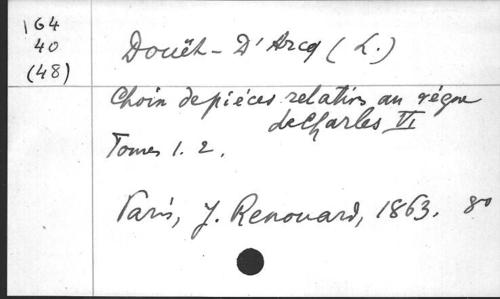 164
40
(48)
Douët - D'Arcq (L.)
Choix de pièces relatives au règne
de Charles VI
Tomes 1. 2.
Paris, J. Renouard, 1863. 8°